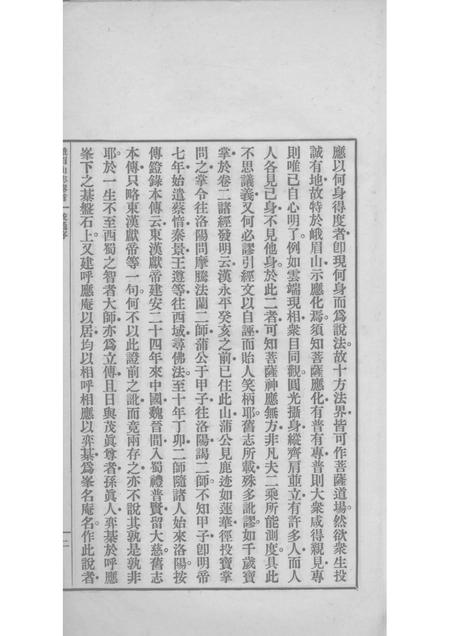 應以何身得度者卽現何身而爲說法故十方法界皆可作菩薩道場然欲衆生投
誠有地故特於峨眉山示應化焉須知菩薩應化有普有專普則大衆咸得親見專
則唯已自心明了例如雲端現相衆目同觀圓光攝身縱齊肩並立有許多人而人
人各見己身不見他身於此二者可知菩薩神應無方非凡夫二乘所能測度具此
不思議義又何必謬引經文以自誣而貽人笑柄耶舊志所載殊多訛謬如千歲寶
掌於卷二諸經發明云漢永平癸亥之前已住此山蒲公見鹿迹如蓮華徑投寶掌
問之掌令往洛陽問摩騰法蘭二師蒲公于甲子往洛陽謁二師不知甲子卽明帝
七年始遣蔡愔秦景王遵等往西域尋佛法至十年丁卯二師隨諸人始來洛陽按
傳燈錄本傳云東漢獻帝建安二十四年來中國魏晉間入蜀禮普賢留大慈舊志
本傳只略東漢獻帝等一句何不以此證前之訛而竟兩存之亦不說其孰是孰非
耶於一生不至西蜀之智者大師亦爲立傳且日與茂眞尊者孫眞人弈棊於呼應
峯下之棊盤石上又建呼應庵以居均以相呼相應以弈棊爲峯名庵名作此說者